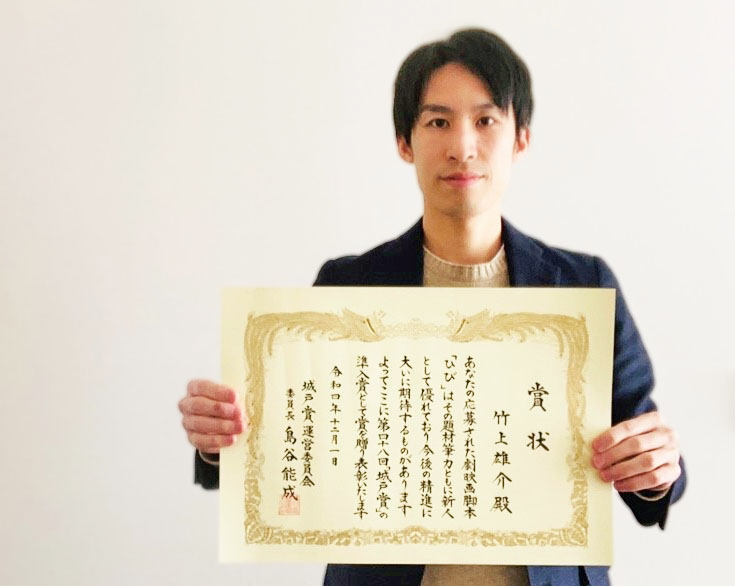 賞状
竹上雄介 殿
あなたの応募された劇映画脚本
「ひび」はその題材筆力ともに新人
として優れており今後の精進に
大いに期待するものがあります
よってここに第四十八回「城戸賞」の
準入賞として賞を贈り表彰いたします
令和四年十二月一日
城戸賞運営委員会
委員長 島谷能成